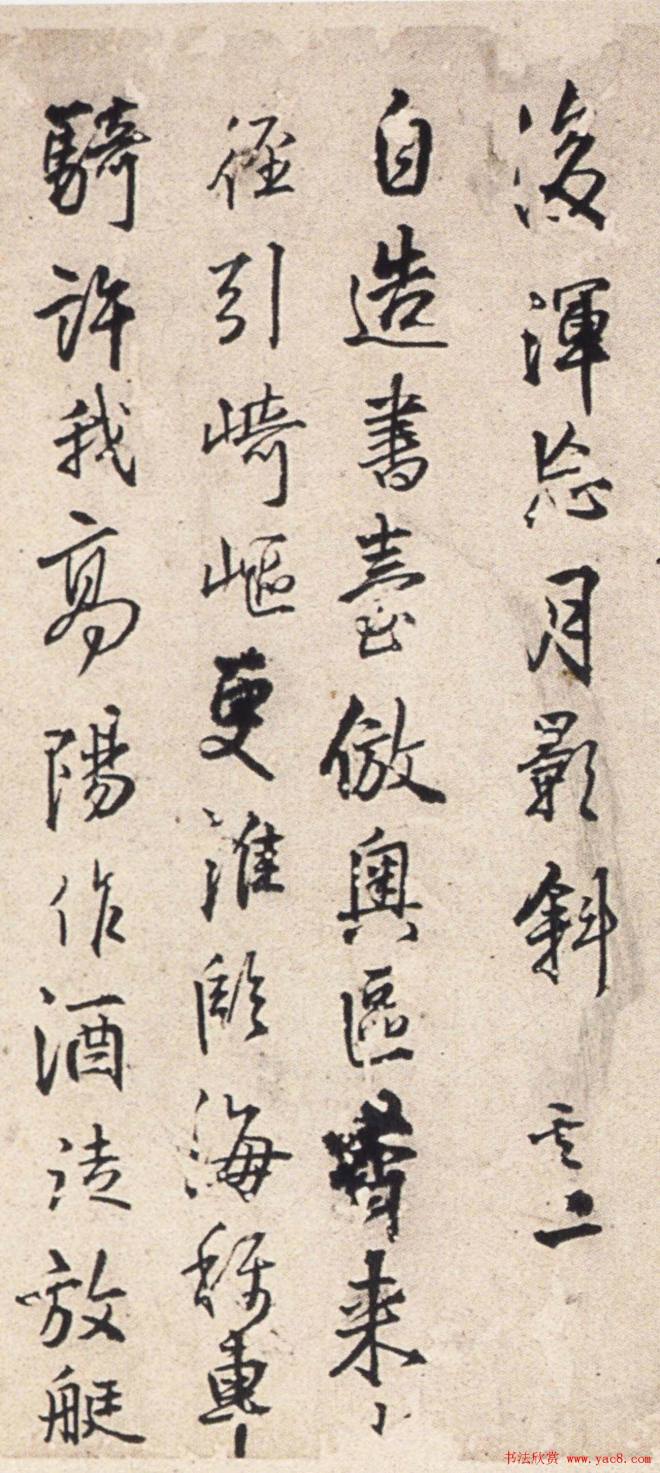 後渾忘月影斜 其二
自造書臺倣奧區來小
徑引崎嶇更海稱專
騎許我高陽作酒徒放艇
书法欣赏 www.yac8.com